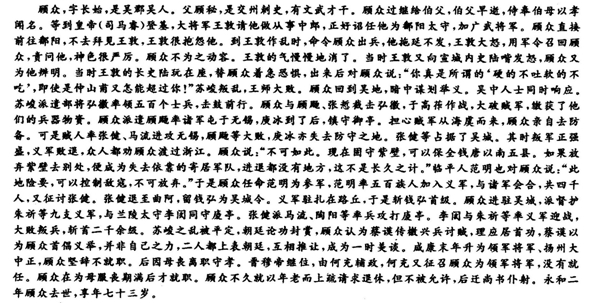 顾众,字长始,是吴郡吴人。父顾秘,是交州刺史,有文武才干。顾众过继给伯父,伯父早逝,侍奉伯母以孝
闻名。等到皇帝(司马睿)登基,大将军王敦请他做从事中郎,正好诏任他为鄱阳太守,加广武将军。顾众直接
前往鄱阳,不去拜见王敦,王敦很抱怨他。到王敦作乱时,命令顾众出兵,他拖延不发,王敦大怒,用军令召回顾
众,责问他,神色很严厉。顾众不为之动容。王敦的气慢慢地消了。当时王敦又向宣城内史陆喈发怒,顾众又
为他辨明。当时王敦的长史陆玩在座,替顾众着急恐惧,出来后对顾众说:“你真是所谓的‘硬的不吐软的不
吃’,即使是仲山甫又怎能超过你!”苏峻叛乱,王师大败。顾众回到吴地,暗中谋划举义。吴中人士同时响应。
苏峻派遣部将弘徽率领五百个士兵,去鼓行前。顾众与顾飏、张悊截击弘徽,于高莋作战,大破贼军,缴获了他
们的兵器物资。顾众派遣顾飏率诸军屯于无锡,庾冰到了后,镇守御亭。担心贼军从海虞而来,顾众亲自去防
备。可是贼人率张健、马流进攻无锡,顾飏等大败,庾冰亦失去防守之地。张健等占据了吴城。其时叛军正强
盛,义军败退,众人都劝顾众渡过浙江。顾众说:“不可如此。现在固守紫壁,可以保全钱唐以南五县。如果放
弃紫壁去别处,便成为失去依靠的寄居军队,进退都没有地方,这不是长久之计。”临平人范明也对顾众说:“此
地险要,可以控制敌寇,不可放弃。”于是顾众任命范明为参军,范明率五百族人加入义军,与诸军会合,共四千
人,又征讨张健。张健退至曲阿,留钱弘为吴城令。义军驻扎在路丘,于是斩钱弘首级。顾众进驻吴城,派督护
朱祈等九支义军,与兰陵太守李闳同守庱亭。张健派马流、陶阳等率兵攻打庱亭。李闳与朱祈等率义军迎战,
大败叛兵,斩首二千余级。苏峻之乱被平定,朝廷论功封赏,顾众认为蔡谟传檄兴兵讨贼,理应居首功,蔡谟以
为顾众首倡义举,并非自己之力,二人都上表朝廷,互相推让,成为一时美谈。咸康末年升为领军将军、扬州大
中正,顾众坚辞不就职。后因母丧离职守孝。晋穆帝继位,由何充辅政,何充又征召顾众为领军将军,没有就
任。顾众在为母服丧期满后才就职。顾众不久就以年老而上疏请求退休,但不被允许,后迁尚书仆射。永和二
年顾众去世,享年七十三岁。